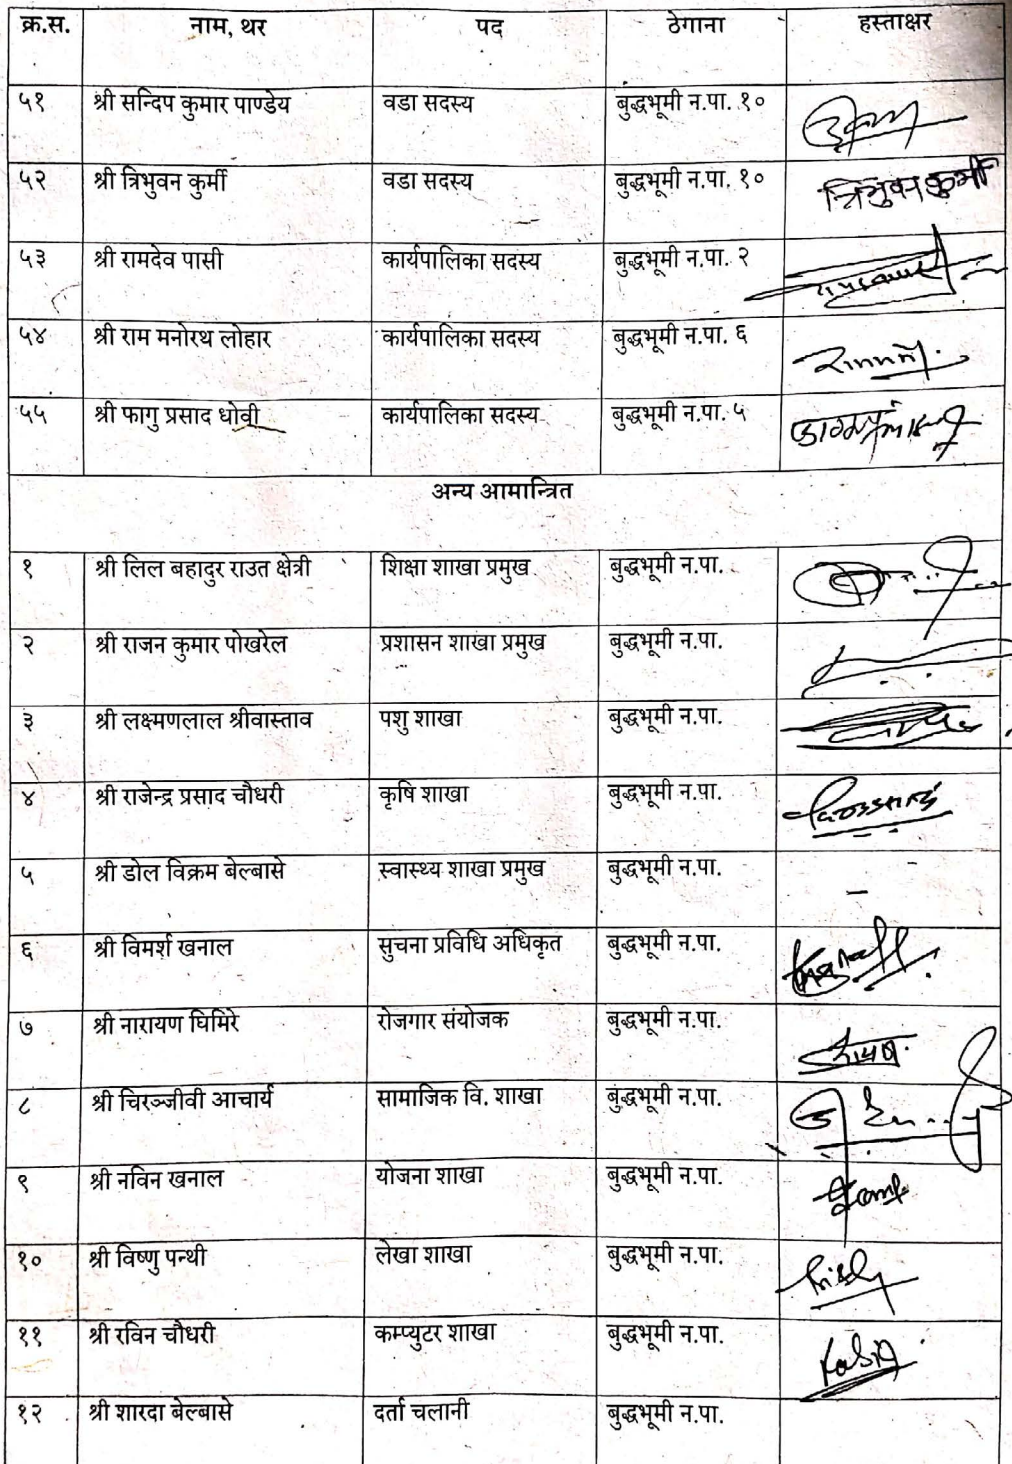 क्र.स. नाम, थर पद ठेगाना हस्ताक्षर
५१ श्री सन्दिप कुमार पाण्डेय वडा सदस्य बुद्धभूमी न.पा. १०
५२ श्री त्रिभुवन कुर्मी वडा सदस्य बुद्धभूमी न.पा. १० त्रिभुवन कुर्मी
५३ श्री रामदेव पासी कार्यपालिका सदस्य बुद्धभूमी न.पा. २
५४ श्री राम मनोरथ लोहार कार्यपालिका सदस्य बुद्धभूमी न.पा. ६
५५ श्री फागु प्रसाद धोवी कार्यपालिका सदस्य बुद्धभूमी न.पा. ५
अन्य आमान्त्रित
१ श्री लिल बहादुर राउत क्षेत्री शिक्षा शाखा प्रमुख बुद्धभूमी न.पा.
२ श्री राजन कुमार पोखरेल प्रशासन शाखा प्रमुख बुद्धभूमी न.पा.
३ श्री लक्ष्मणलाल श्रीवास्ताव पशु शाखा बुद्धभूमी न.पा.
४ श्री राजेन्द्र प्रसाद चौधरी कृषि शाखा बुद्धभूमी न.पा.
५ श्री डोल विक्रम बेल्बासे स्वास्थ्य शाखा प्रमुख बुद्धभूमी न.पा. –
६ श्री विमर्श खनाल सुचना प्रविधि अधिकृत बुद्धभूमी न.पा.
७ श्री नारायण घिमिरे रोजगार संयोजक बुद्धभूमी न.पा.
८ श्री चिरञ्जीवी आचार्य सामाजिक वि. शाखा बुद्धभूमी न.पा.
९ श्री नविन खनाल योजना शाखा बुद्धभूमी न.पा.
१० श्री विष्णु पन्थी लेखा शाखा बुद्धभूमी न.पा.
११ श्री रविन चौधरी कम्प्युटर शाखा बुद्धभूमी न.पा.
१२ श्री शारदा बेल्बासे दर्ता चलानी बुद्धभूमी न.पा.